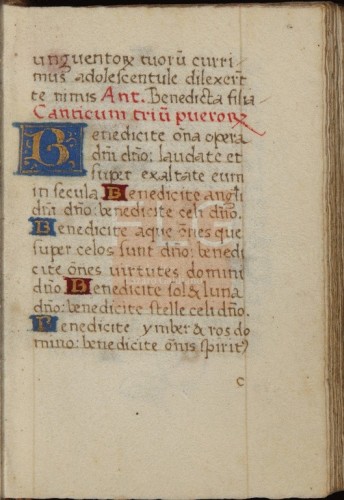 unguentoꝝ tuorũ curri
mus adolescentule dilexerũt
te nimis Ant. Benedicta filia
Canticum triũ pueroꝝ
Benedicite oĩa opera
dñi dño: laudate et
super exaltate eum
in secula. Benedicite angli
dñi dño: benedicite celi dño.
Benedicite aque õnes que
super celos sunt dño: benedi
cite õnes virtutes domini
dño Benedicite sol & luna
dño: benedicite stelle celi dño.
Benedicite ymber & ros do
mino: benedicite õnis spirit9
c